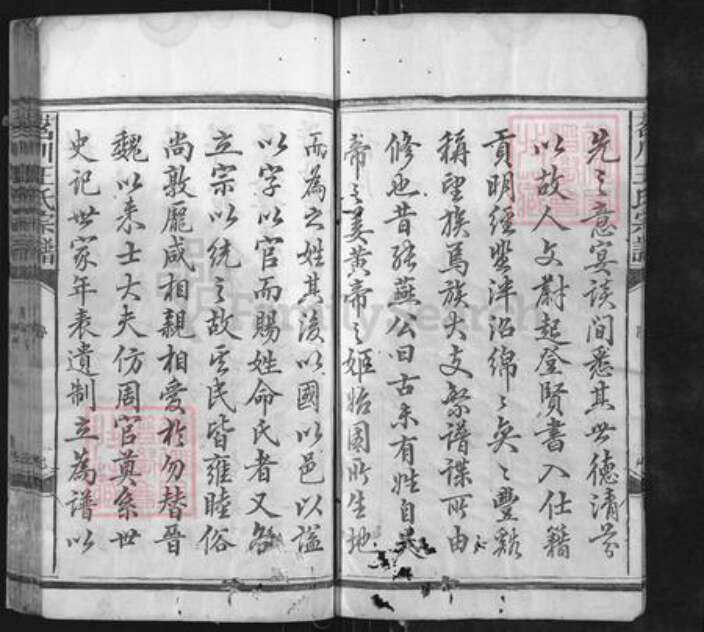 先之意寅談間悉其世德清芬
以故人文蔚起登賢書入仕籍
貢明經登泮沼綿〻奕〻豐谿
稱望族焉族大支繁譜諜所由
修也昔張燕公曰古未有姓自炎
帝之姜黃帝之姬始因所生地
而為之姓其後以國以邑以謚
以字以官而賜姓命氏者又各
立宗以統之故其民皆雍睦俗
尚敦龐咸相親相愛於勿替晉
魏以來士大夫仿周官奠系世
史記世家年表遺制立為譜以
川王氏宗譜
川王氏宗譜
FamilySearch